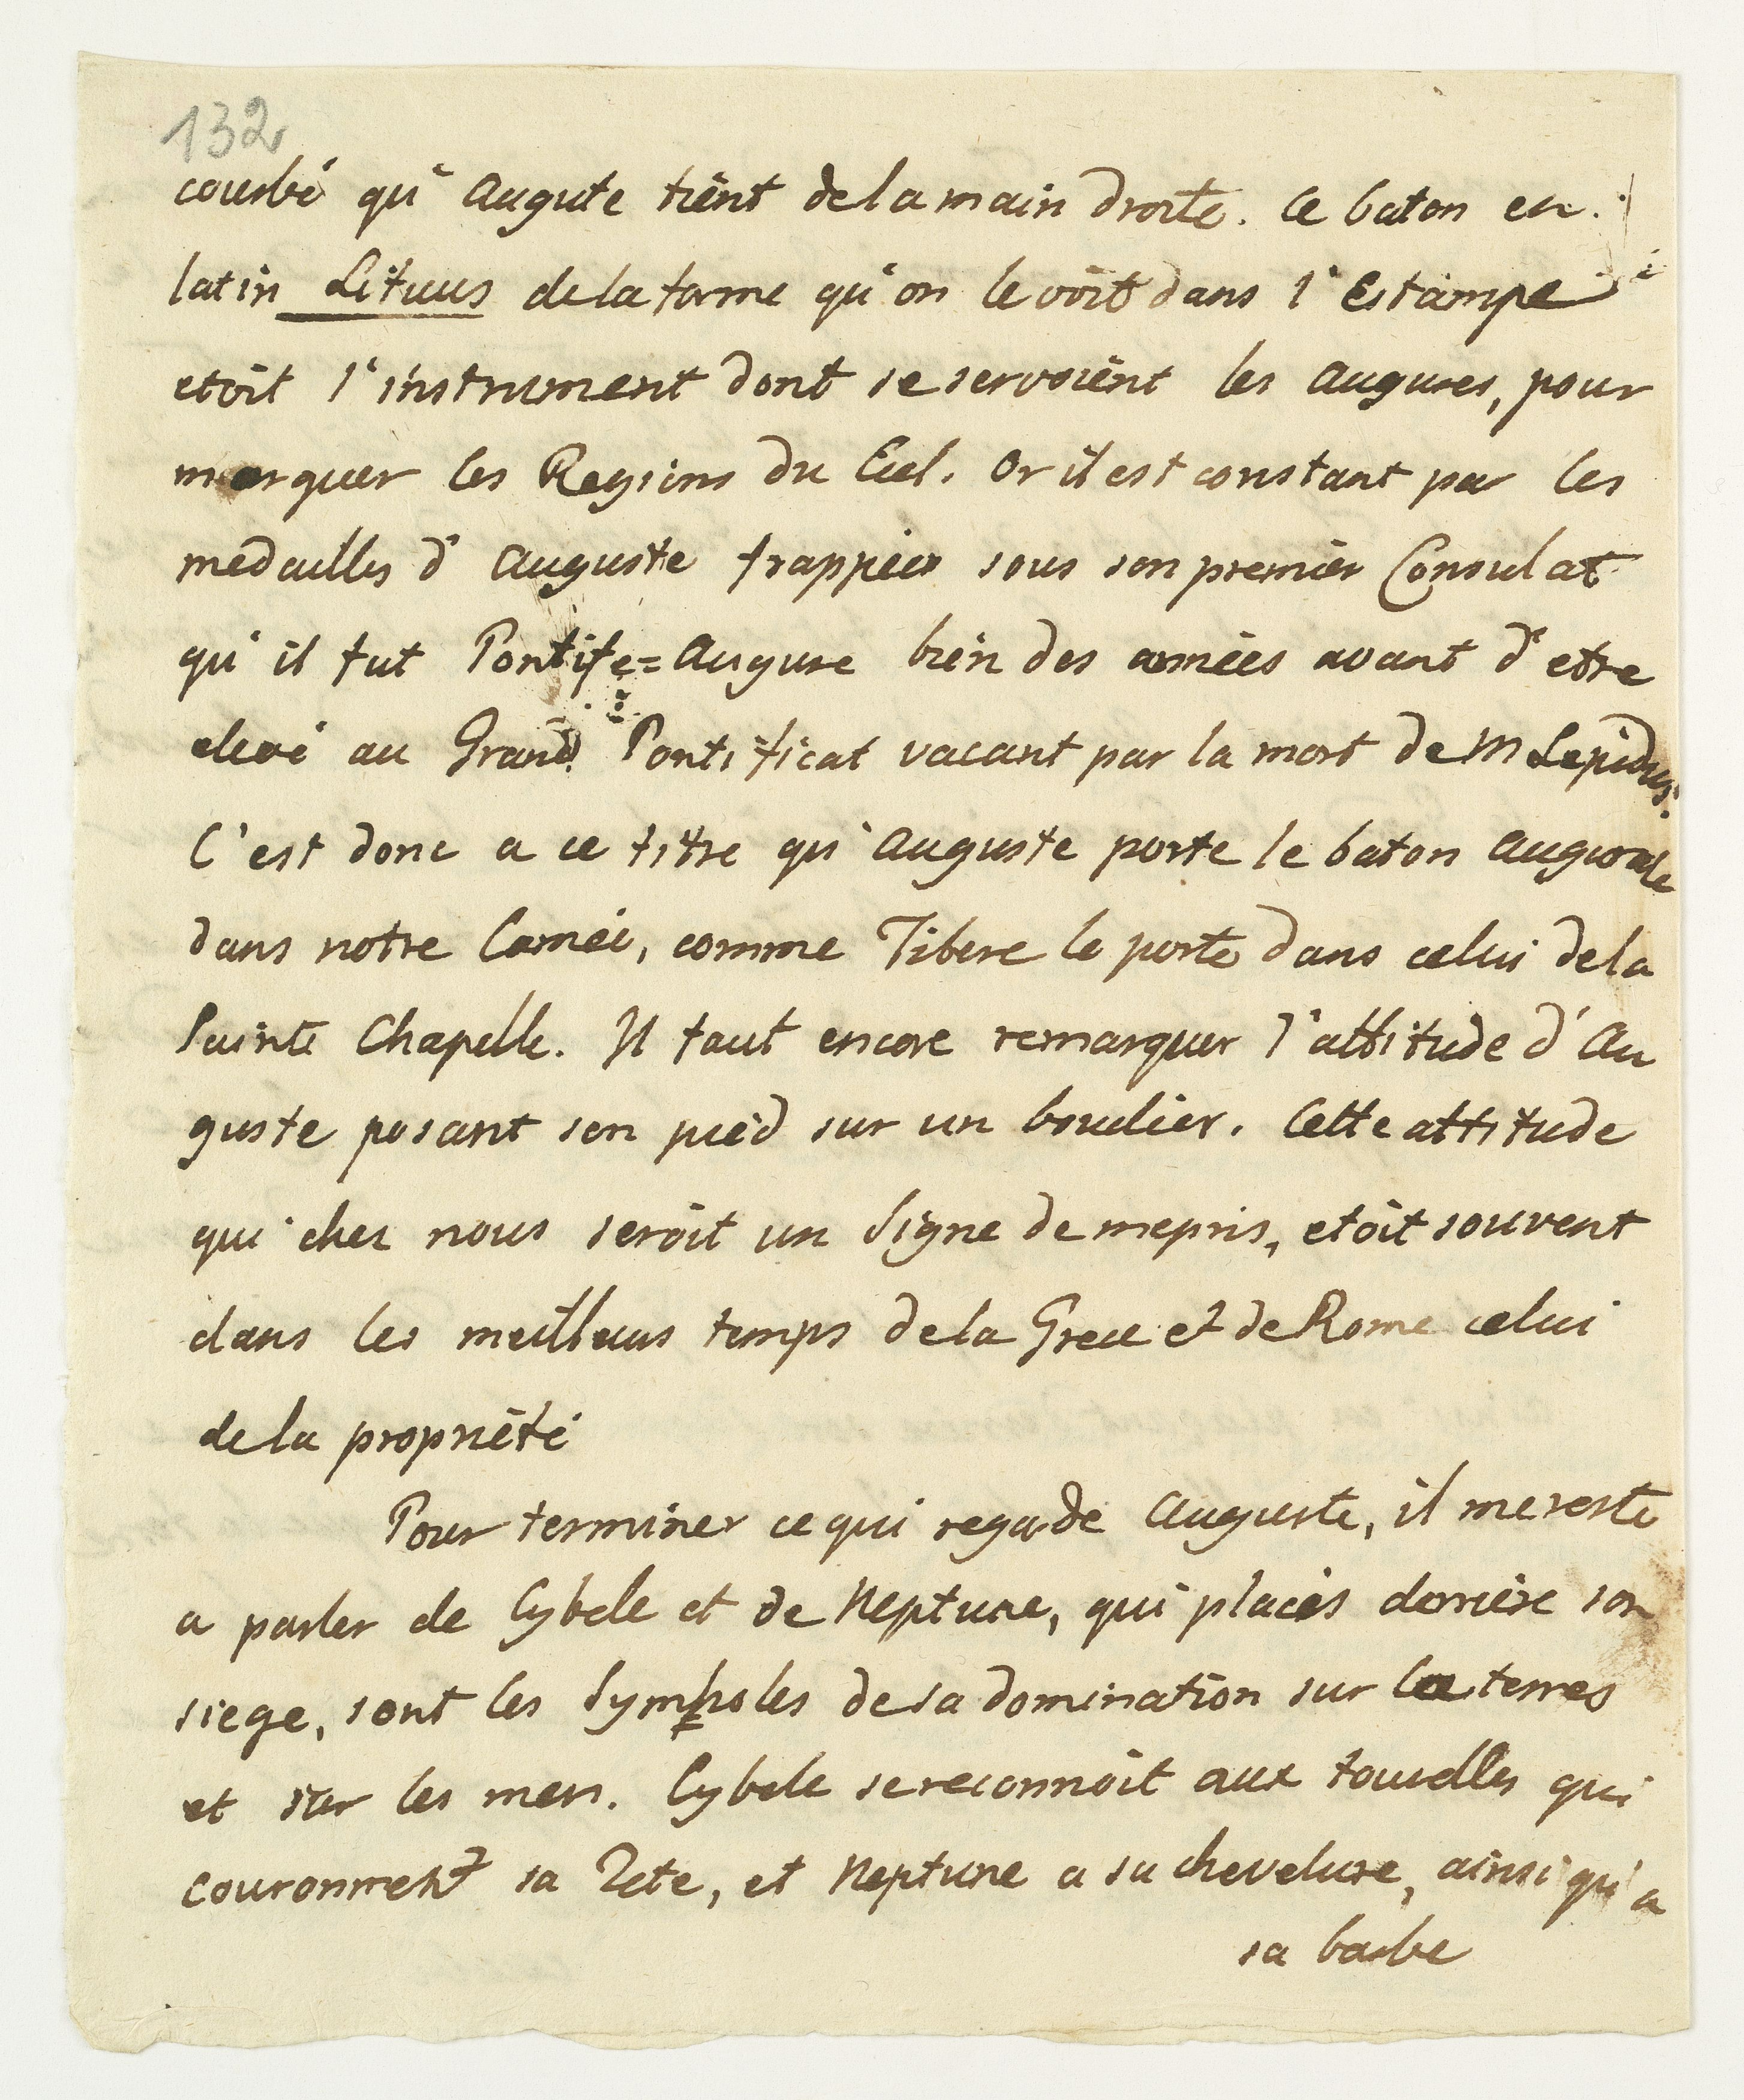 132
courbé qu'Augute tient de la main droite. Ce baton en
latin Lituus de la forme qu'on le voit dans l'Estampe
etoit l'instrument dont se servoient les augures, pour
marquer les Regions du Ciel. Or il est constant par les
medailles d'Auguste frappées sous son premier Consulat
qu'il fut Pontife=Augure bien des années avant d'etre
elevé au Grand Pontificat vacant par la mort de M Lepidus.
C'est donc a ce titre qu'Auguste porte le baton augurale
dans notre Camée, comme Tibere le porte dans celui de la
Sainte Chapelle. Il faut encore remarquer l'attitude d'Au
guste posant son pied sur un bouclier. Cette attitude
qui chez nous seroit un signe de mepris, etoit souvent
dans les meilleurs temps de la Grece et de Rome celui
de la propriété
Pour terminer ce qui regarde Auguste, il me reste
a parler de Cybele et de Neptune, qui placés derriere son
siege, sont les Symboles de sa domination sur les terres
et sur les mers. Cybele se reconnoit aux tourelles qui
couronnent sa Tete, et Neptune a sa chevelure, ainsi qu'a
sa barbe